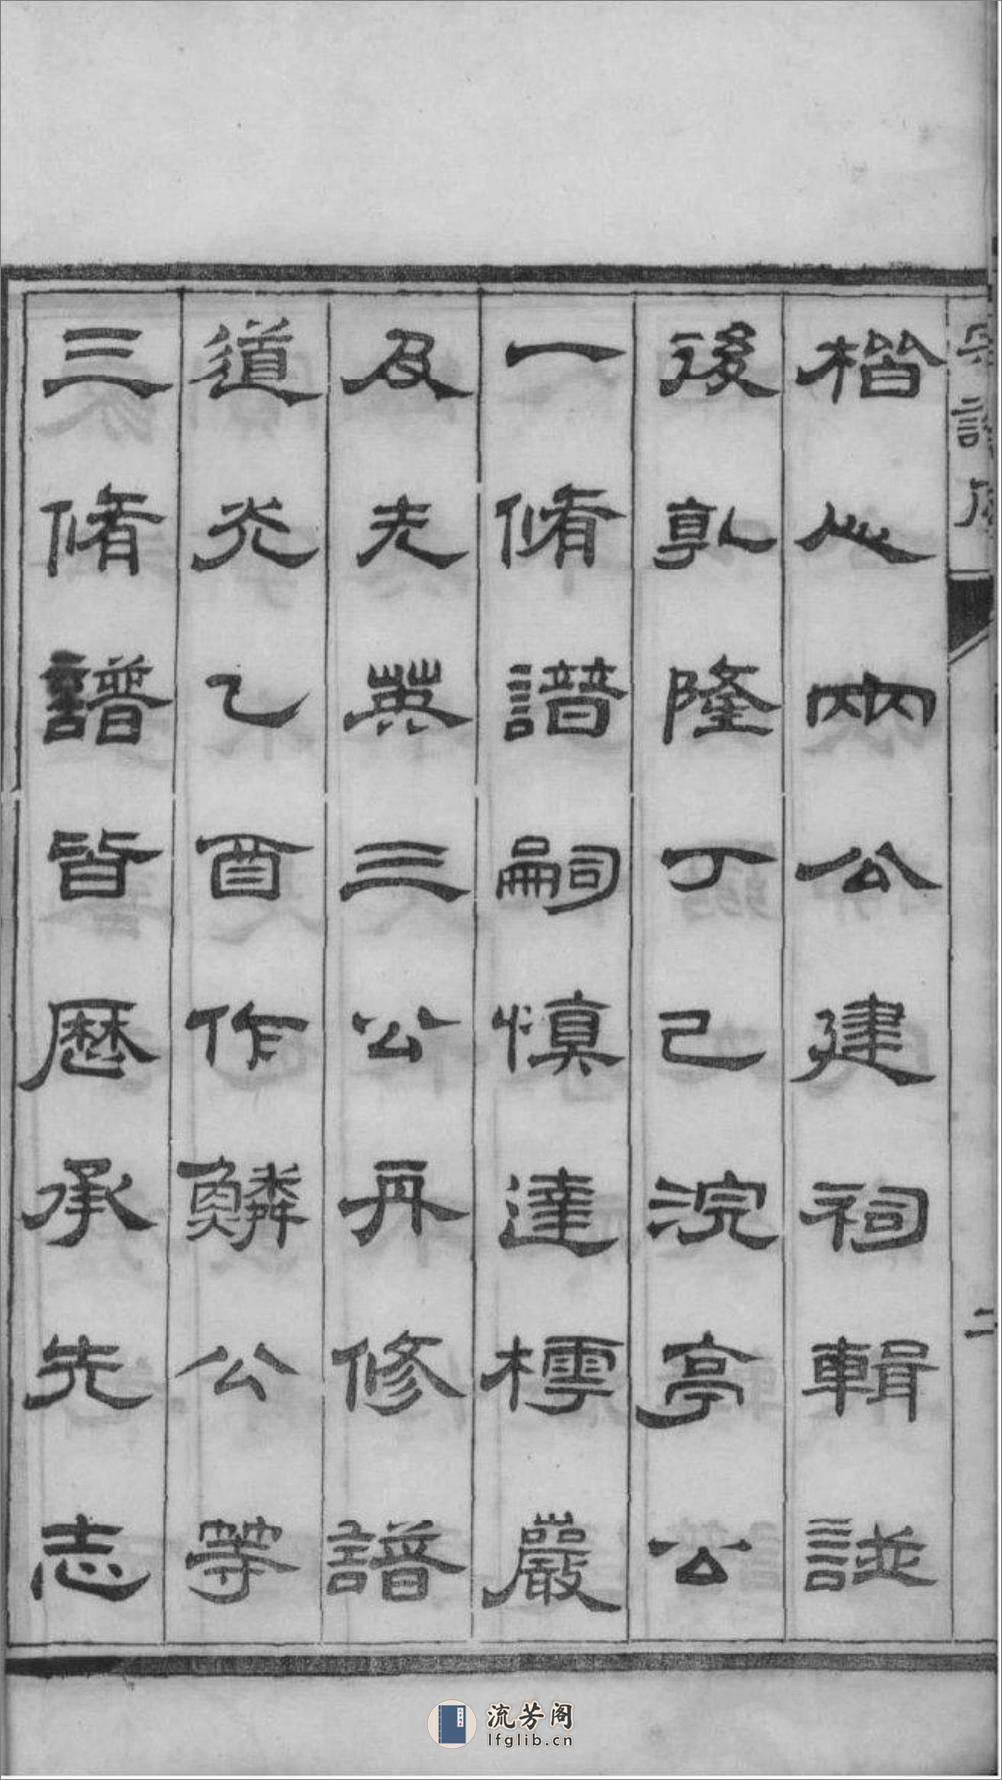 楷心兩公建祠輯譜
後乾隆丁己浣亭公
一脩譜嗣慎達樗巖
及光英三公再修譜
道光乙酉作鱗公等
三脩譜皆歷承先志
譜序
二
流芳阁
lfglib.cn